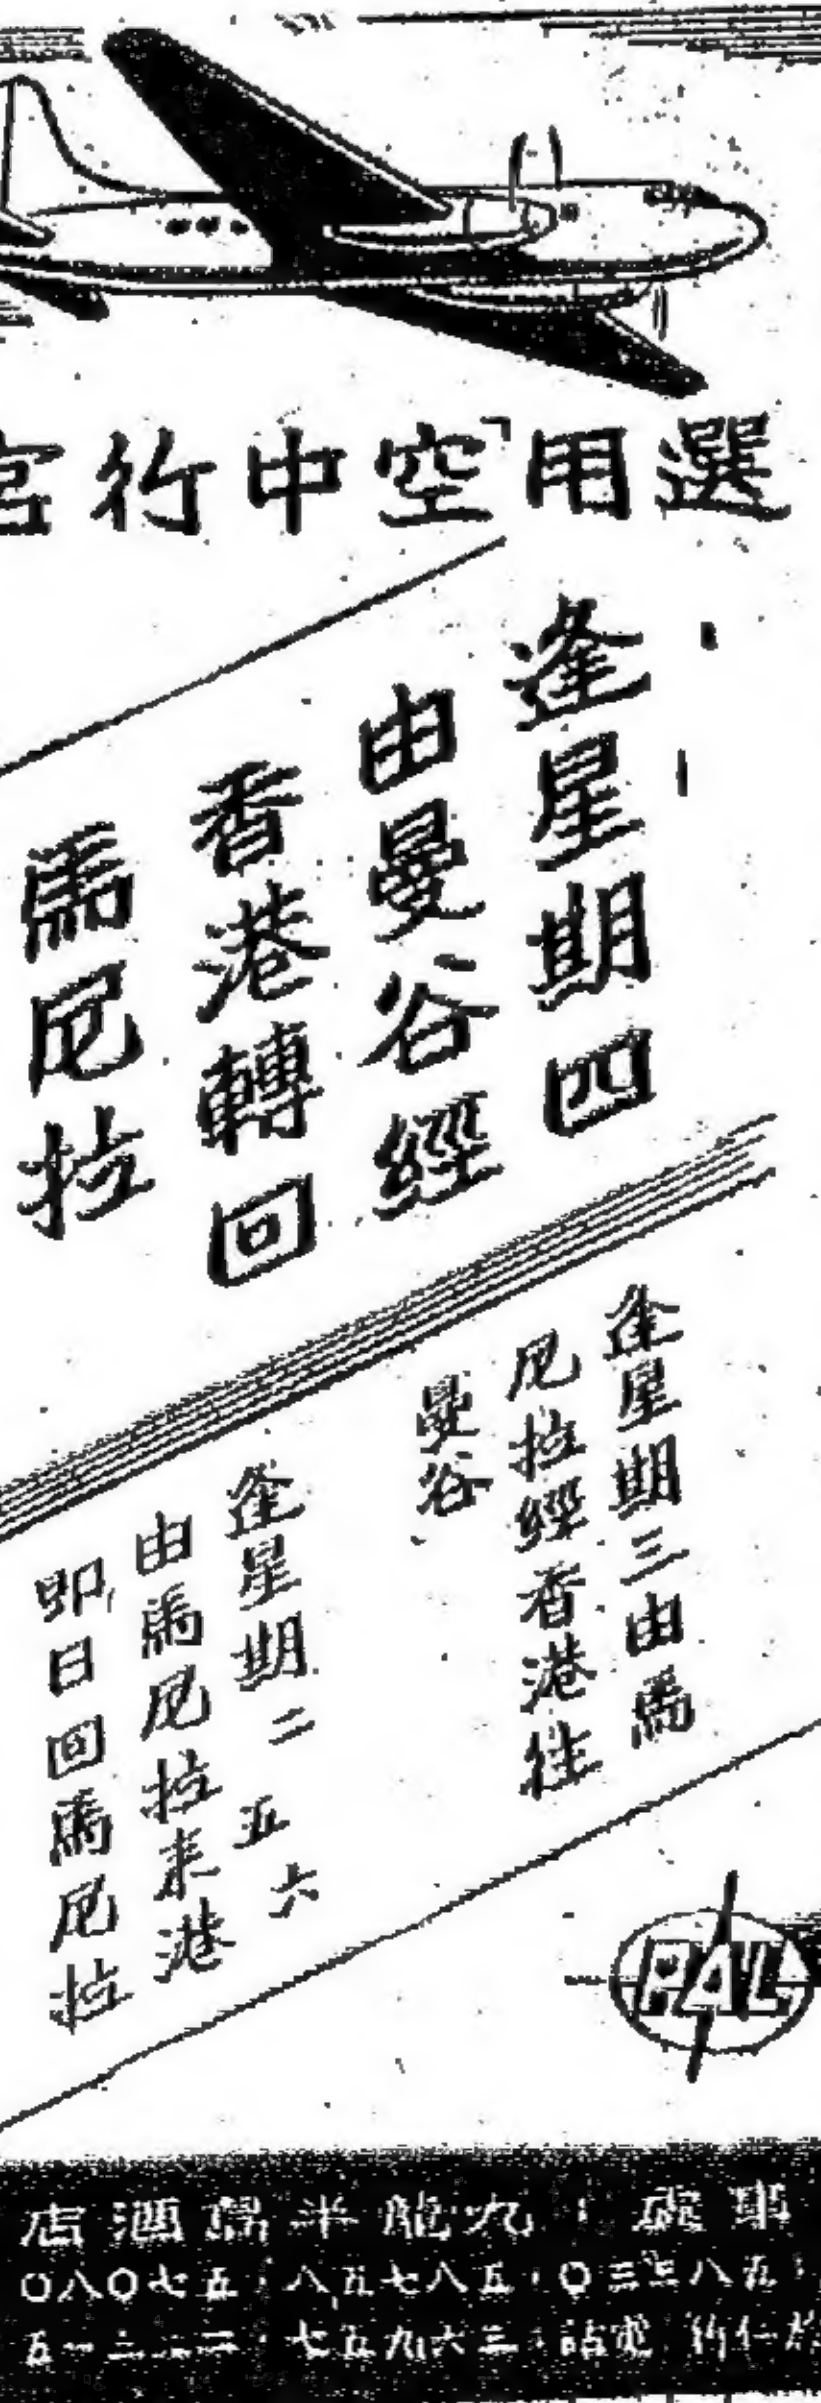 選用「空中行宮
逢星期四
由曼谷經
香港轉回
馬尼拉
逢星期三由馬
尼拉經香港往
曼谷
逢星期二五六
由馬尼拉來港
即日回馬尼拉
PAL
事處：九龍半島酒店
五八三三〇・五八七五八・五七〇八〇
仁行 電話：三六九五七・二二三一五